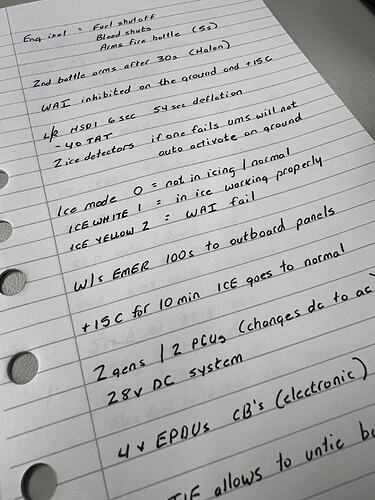 Eng isol = Fuel shutoff
Bleed shuts
Arms fire bottle (5s)
2nd bottle arms after 30s (Halon)
WAI inhibited on the ground and +15C
L/R HSDI 6 sec 54 sec deflation
-40 TAT
2 ice detectors if one fails wms will not
auto activate on ground
Ice mode 0 = not in icing / normal
ICE WHITE 1 = in ice working properly
ICE YELLOW 2 = WAI fail
W/S EMER 100s to outboard panels
+15C for 10 min ICE goes to normal
2 gens / 2 PCUs (changes dc to ac)
28v DC system
4 x EPDUs CB's (electronic)
TIE allows to untie